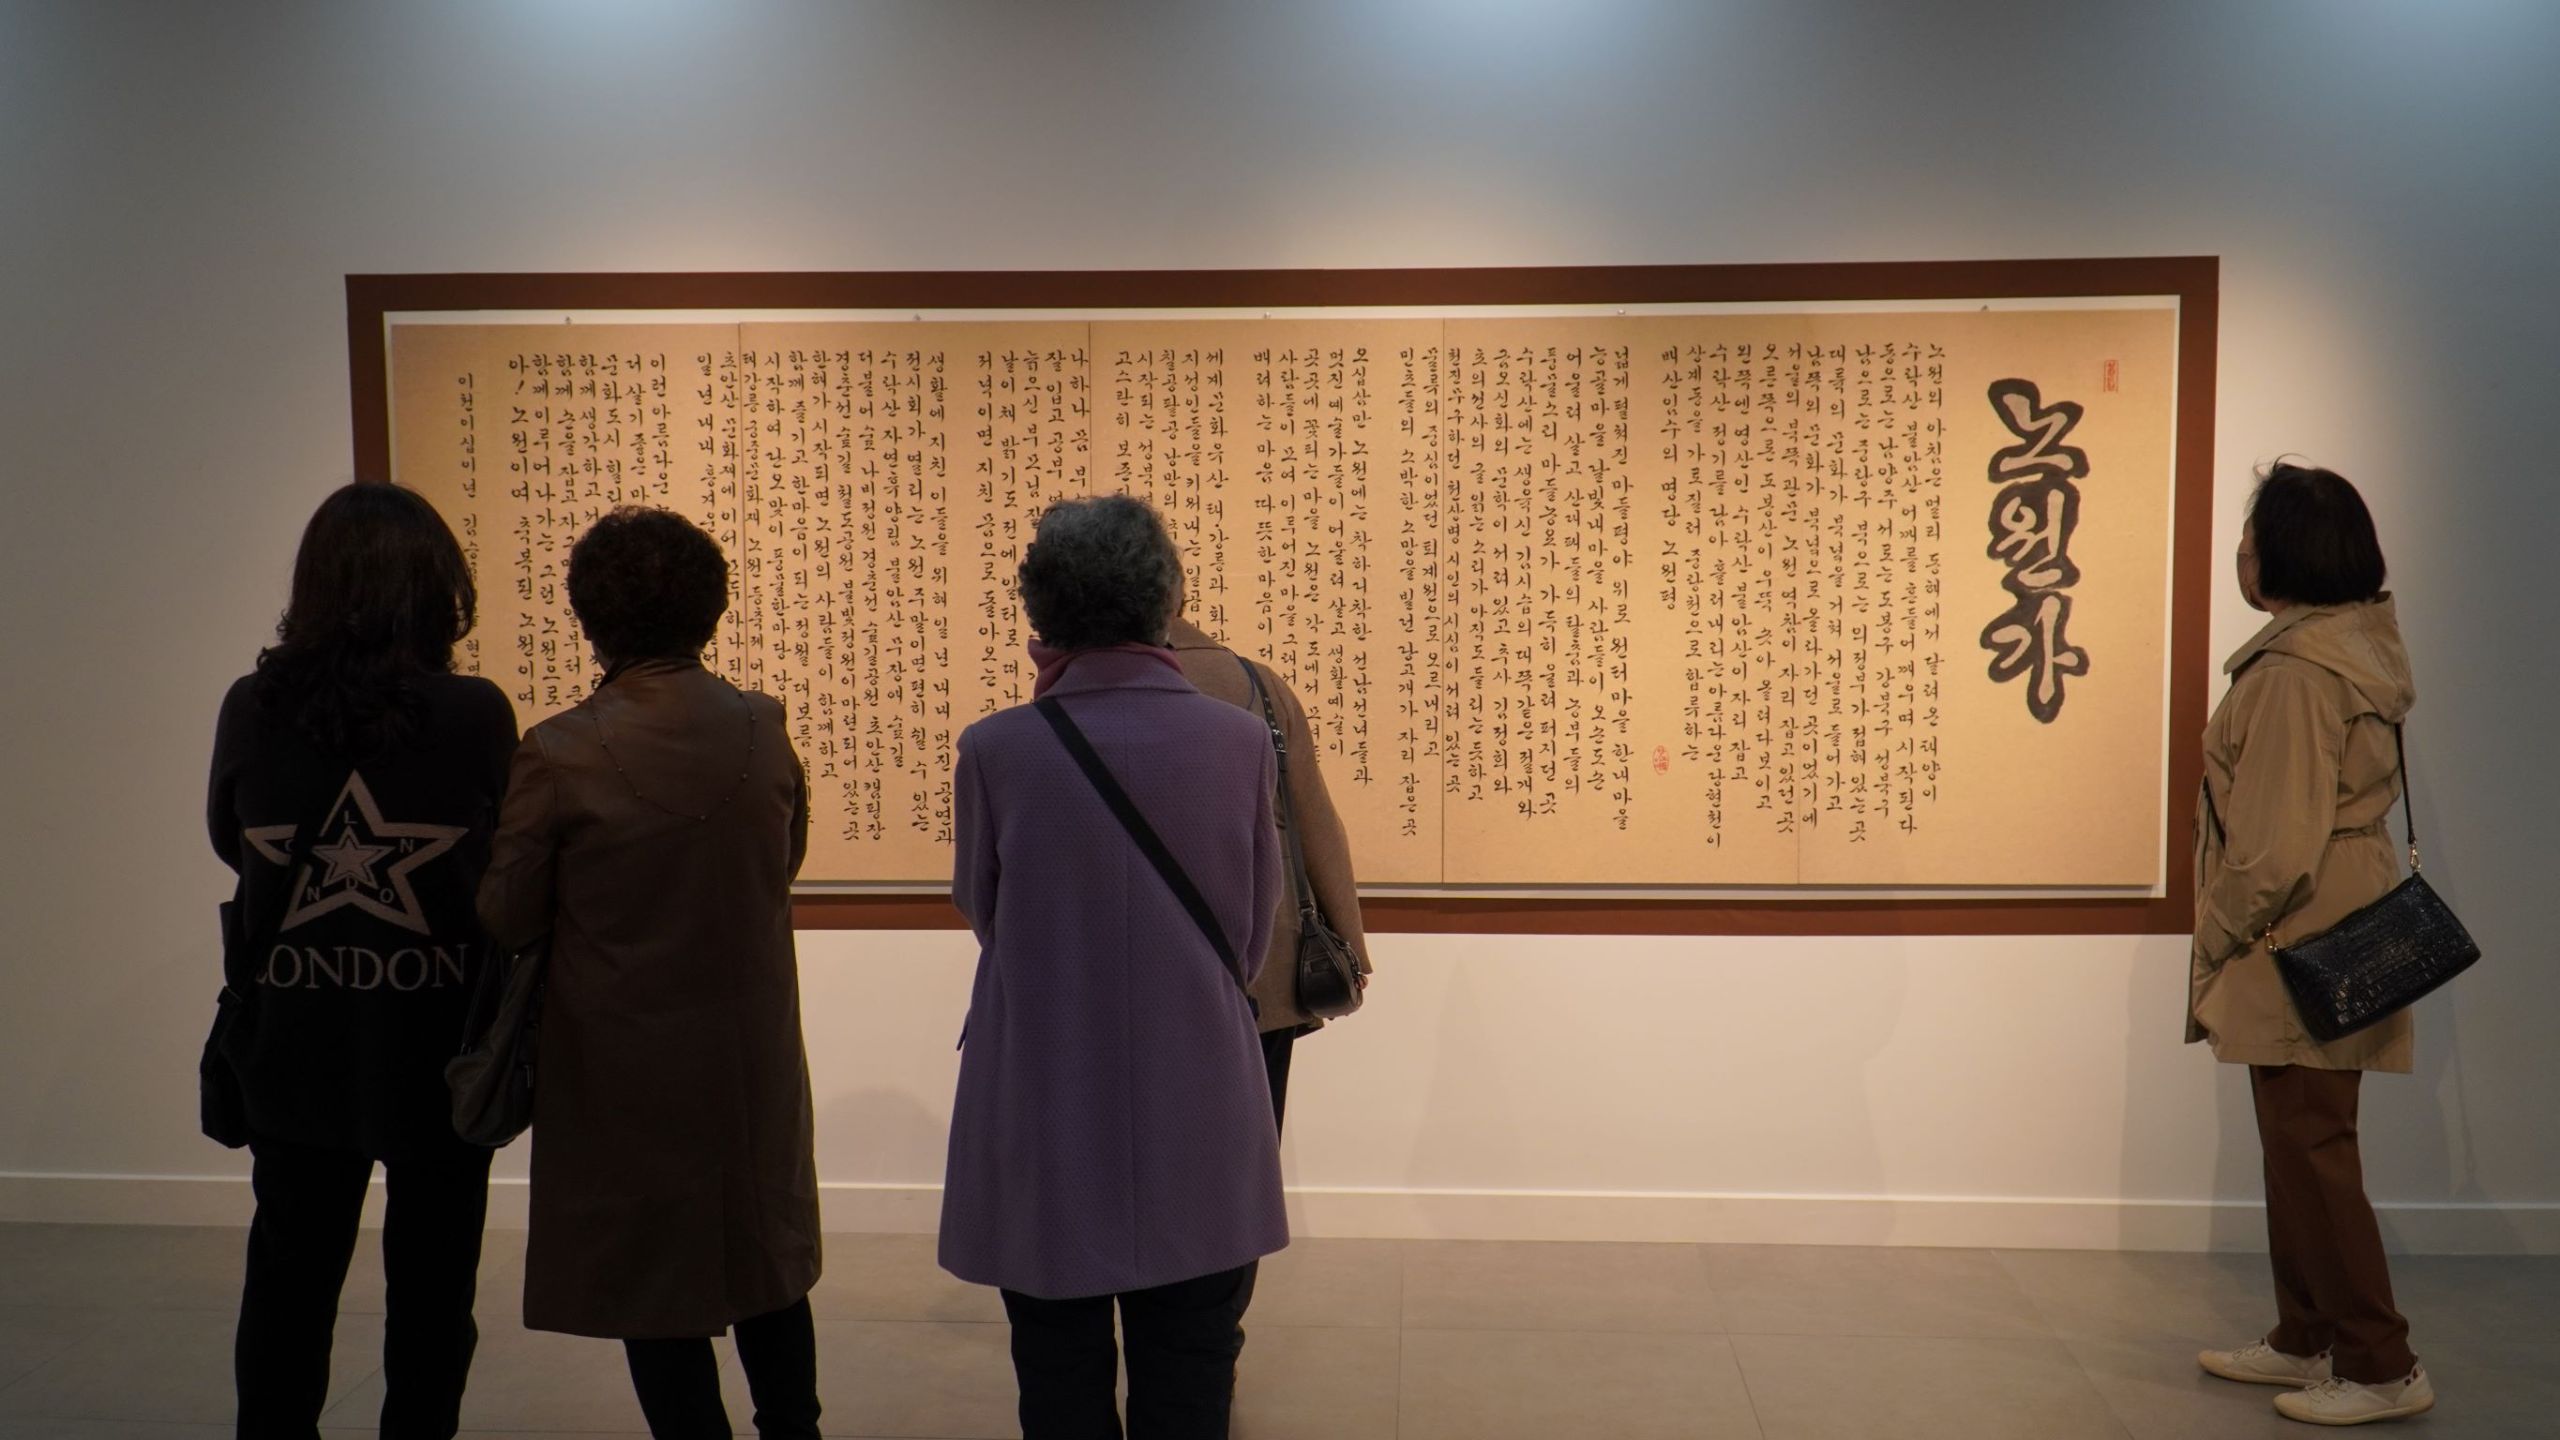 노원가
노원의 아침은 멀리 동해에서 달려온 태양이
수락산 불암산 어깨를 흔들어 깨우며 시작된다
동으로는 남양주 서로는 도봉구 강북구 성북구
남으로는 중랑구 북으로는 의정부가 접해 있는 곳
대륙의 문화가 북녘을 거쳐 서울로 들어가고
남쪽의 문화가 북녘으로 올라가던 곳이었기에
서울의 북쪽 관문 노원 역참이 자리 잡고 있던 곳
오른쪽으론 도봉산이 우뚝 솟아 올려다보이고
왼쪽엔 영산인 수락산 불암산이 자리 잡고
수락산 정기를 담아 흘러내리는 아름다운 당현천이
산계동을 가로질러 중랑천으로 합류하는
배산임수의 명당 노원평
넓게 펼쳐진 마들평야 위로 원터마을 한내마을
능골마을 달빛내마을 사람들이 오손도손
어울려 살고 산대패들의 탈춤과 농부들의
풍물소리 마들농요가 가득히 울려 퍼지던 곳
수락산에는 생육신 김시습의 대쪽같은 절개와
금오신화의 문학이 서려 있고 추사 김정희와
초의선사의 글 읽는 소리가 아직도 들리는 듯하고
천진무구하던 천상병 시인의 시심이 서려 있는 곳
물류의 중심이었던 퇴계원으로 오르내리고
민초들의 소박한 소망을 빌던 당고개가 자리 잡은 곳
오십삼만 노원에는 착하디착한 선남선녀들과
멋진 예술가들이 어울려 살고 생활예술이
곳곳에 꽃피는 마을 노원은 각도에서
사람들이 모여 이루어진 마을 그래서
배려하는 마음 따뜻한 마음이 더
세계문화유산 태·강릉과 화랑
지성인들을 키워내는 일곱
칠공팔공 낭만의
시작되는 성북역
고스란히 보존
나 하나쯤
잘 입고 공부
늙으신 부모님
날이 채 밝기도 전에 일터로 떠나
저녁이면 지친 몸으로 돌아오는
생활에 지친 이들을 위해 일 년 내내 멋진 공연과
전시회가 열리는 노원 주말이면 편히 쉴 수 있는
수락산 자연휴양림 불암산 무장애 숲길
더불어숲 나비정원 경춘선 숲길공원 초안산 캠핑장
경춘선 숲길 철도공원 불빛정원이 마련되어 있는 곳
한해가 시작되면 노원의 사람들이 함께하고
함께 즐기고 한마음이 되는 정월 대보름
시작하여 단오맞이 풍물한마당
태강릉 궁중문화제 노원 등축제
초안산 문화제에 이어 모두 하나 되는
일 년 내내 흥겨운
이런 아름다운
더 살기 좋은 마
문화도시 힐링
함께 생각하고
함께 손을 잡고
함께 이루어나가는 그런 노원으로
아! 노원이여 축복된 노원이여
이천이십이년
LONDON
LONDON